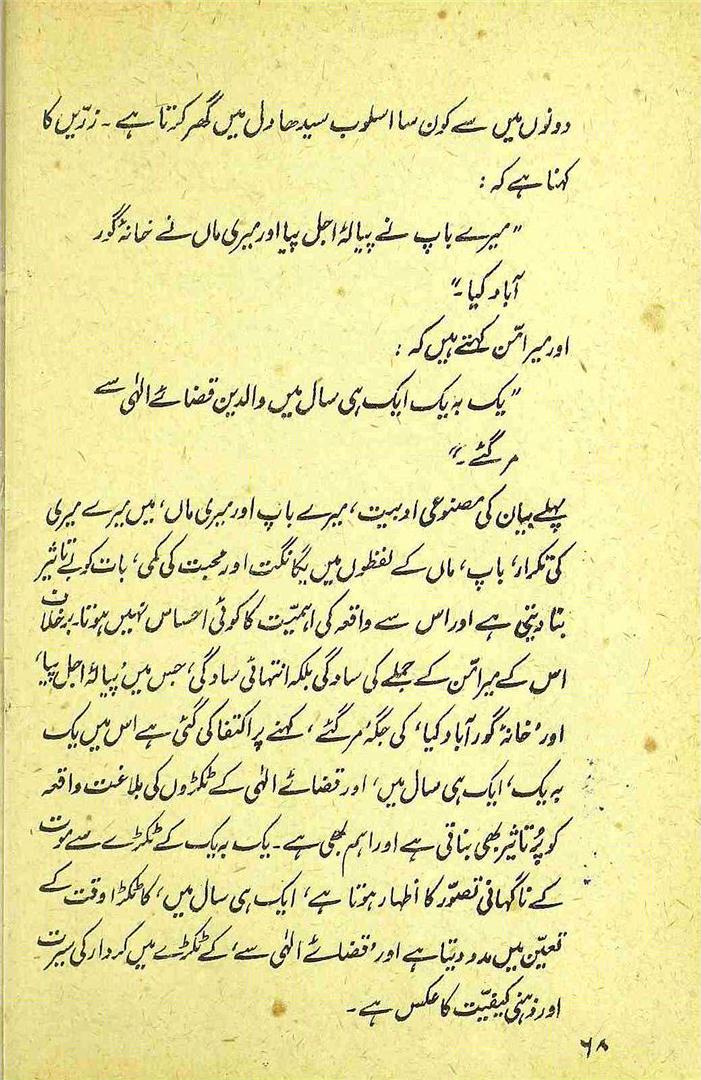 دونوں میں سے کون سا اسلوب سیدھا دل میں گھر کرتا ہے۔ زرّیں کا
کہنا ہے کہ:
”میرے باپ نے پیالۂ اجل پیا اور میری ماں نے خانۂ گور
آباد کیا۔“
اور میر امّن کہتے ہیں کہ:
”یک بہ یک ایک ہی سال میں والدین قضائے الٰہی سے
مر گئے۔“
پہلے بیان کی مصنوعی ادبیت، میرے باپ اور میری ماں، میں میرے میری
کی تکرار، باپ، ماں کے لفظوں میں یگانگت اور محبت کی کمی، بات کو بے تاثیر
بنا دیتی ہے اور اس سے واقعہ کی اہمیّت کا کوئی احساس نہیں ہوتا۔ برخلاف
اس کے میر امّن کے جملے کی سادگی بلکہ انتہائی سادگی، جس میں ’پیالۂ اجل پیا‘
اور ’خانۂ گور آباد کیا‘ کی جگہ ’مر گئے‘ کہنے پر اکتفا کی گئی ہے اس میں یک
بہ یک، ’ایک ہی سال میں‘ اور قضائے الٰہی کے ٹکڑوں کی بلاغت واقعہ
کو پُر تاثیر بھی بناتی ہے اور اہم بھی ہے۔ یک بہ یک کے ٹکڑے سے موت
کے ناگہانی تصوّر کا اظہار ہوتا ہے، ’ایک ہی سال میں‘ کا ٹکڑا وقت کے
تعیّن میں مدد دیتا ہے اور ’قضائے الٰہی سے‘ کے ٹکڑے میں کردار کی سیرت
اور ذہنی کیفیّت کا عکس ہے۔
۶۸